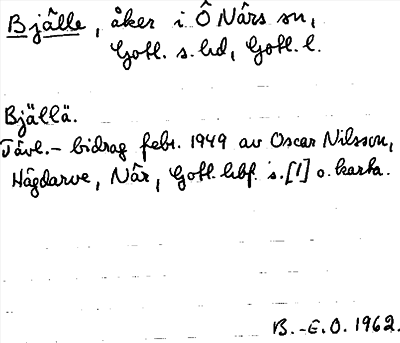 Bjälle, åker i Ô Nârs sn,
Gotl. s. hd, Gotl. l.
Bjällä.
Tävl.- bidrag febr. 1949 av Oscar Nilsson,
Hägdarve, När, Gotl. hbf. s.[1] o. karta.
B.-E.O. 1962.